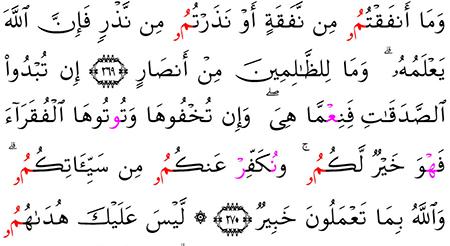 وَمَا أَنفَقْتُمُو مِن نَّفَقَةٍ أَوْ نَذَرْتُمُو مِن نَّذْرٍ فَإِنَّ ٱللَّهَ
يَعْلَمُهُۥ ۗ وَمَا لِلظَّـٰلِمِينَ مِنْ أَنصَارٍ ٣٦٩ إِن تُبْدُوا۟
ٱلصَّدَقَـٰتِ فَنِعْمَّا هِىَ ۖ وَإِن تُخْفُوهَا وَتُوتُوهَا ٱلْفُقَرَآءَ
فَهْوَ خَيْرٌ لَّكُمُو ۚ وَنُكَفِّرْ عَنكُمُو مِن سَيِّـَٔاتِكُمُو ۗ
وَٱللَّهُ بِمَا تَعْمَلُونَ خَبِيرٌ ٣٧٠ ۞ لَّيْسَ عَلَيْكَ هُدَىٰهُمُو